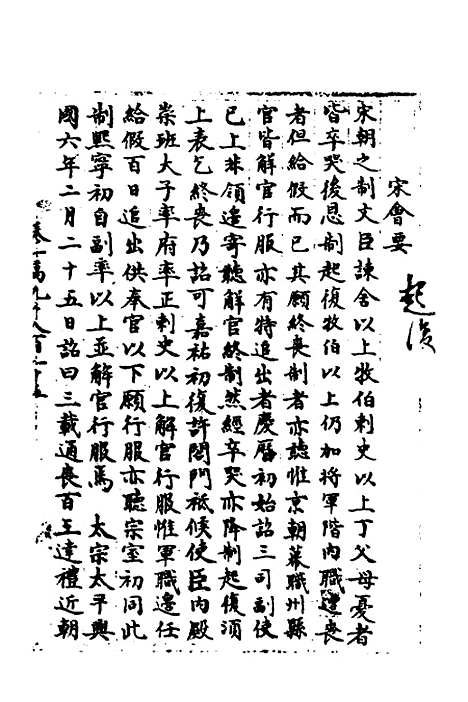 宋會要
起復
宋朝之制文臣諫舍以上牧伯刺史以上丁父母憂者
皆卒哭後恩制起復牧伯以上仍加將軍階內職遭喪
者但給假而已其願終喪制者亦聽惟京朝幕職州縣
官皆解官行服亦有特追出者慶曆初始詔三司副使
已上非領邊寄聽解官終制然經卒哭亦降制起復須
上表乞終喪乃詔可嘉祐初復許閤門祗候使臣內殿
崇班大子率府率正刺史以上解官行服惟軍職邊任
給假百日追出供奉官以下願行服亦聽宗室初同此
制熙寧初自副率以上並解官行服焉 太宗太平興
國六年二月二十五日詔曰三載通喪百王達禮近朝